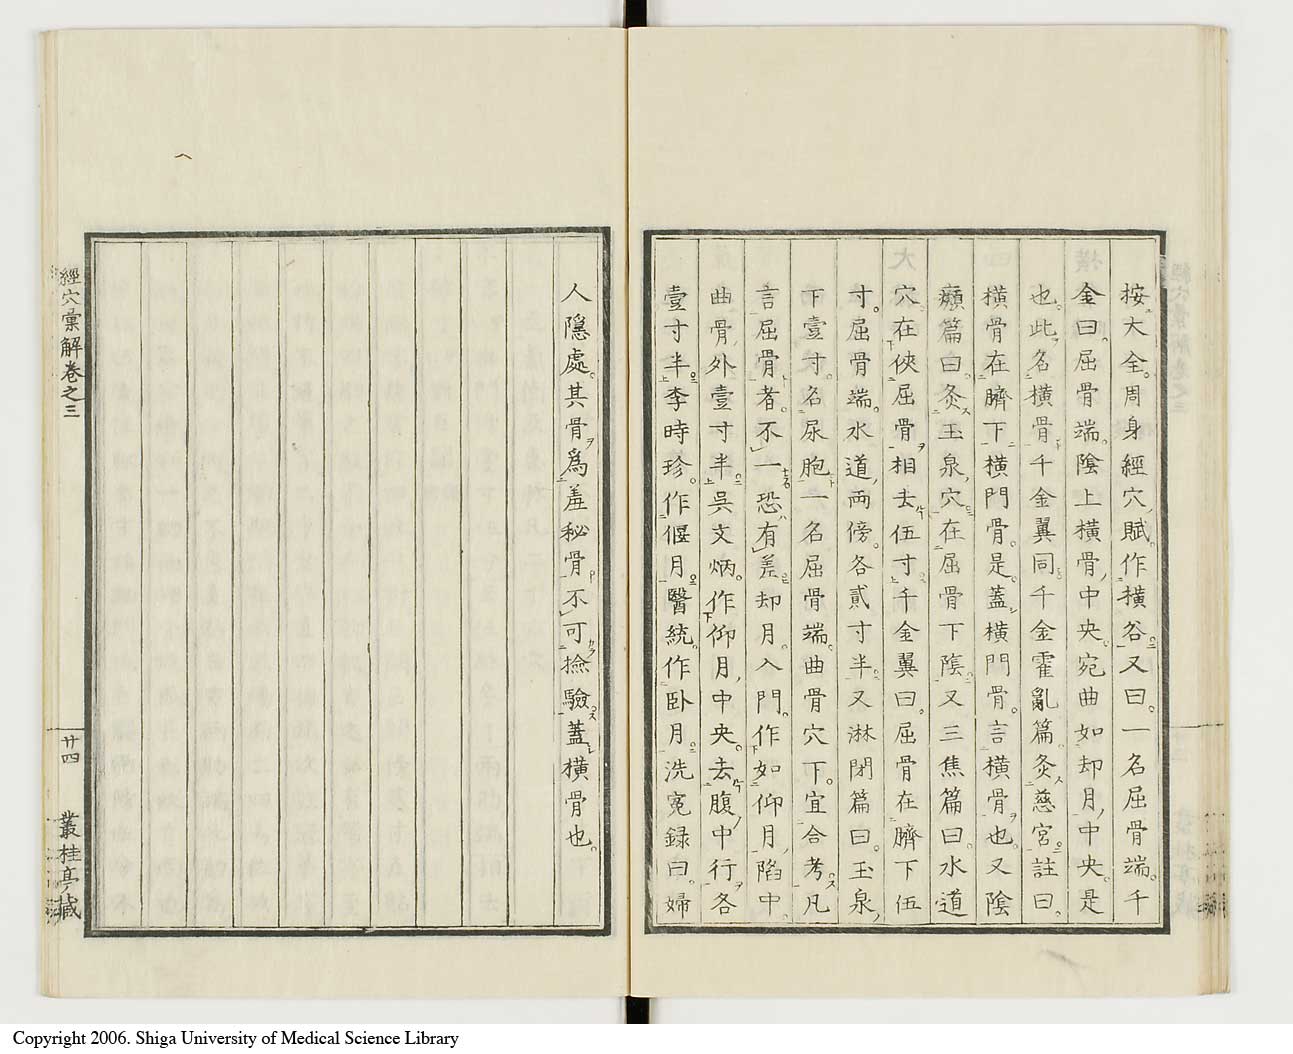 按大全周身經穴賦作橫谷又曰一名屈骨端千
金曰屈骨端陰上橫骨中央宛曲如却月中央是
也此名橫骨千金翼同千金霍亂篇灸慈宮註曰
橫骨在臍下橫門骨是蓋橫門骨言橫骨也又陰
㿗篇曰灸玉泉穴在屈骨下陰又三焦篇曰水道
穴在俠屈骨相去伍寸千金翼曰屈骨在臍下伍
寸屈骨端水道兩傍各貳寸半又淋閉篇曰玉泉
下壹寸名尿胞一名屈骨端曲骨穴下宜合考凡
言屈骨者不一恐有差却月入門作如仰月陷中
曲骨外壹寸半吳文炳作仰月中央去腹中行各
壹寸半李時珍作偃月醫統作臥月洗冤錄曰婦
人隱處其骨爲羞秘骨不可撿驗蓋橫骨也
經穴彙解卷之三
廿四
叢桂亭藏
Copyright 2006. Shiga University of Medical Science Library